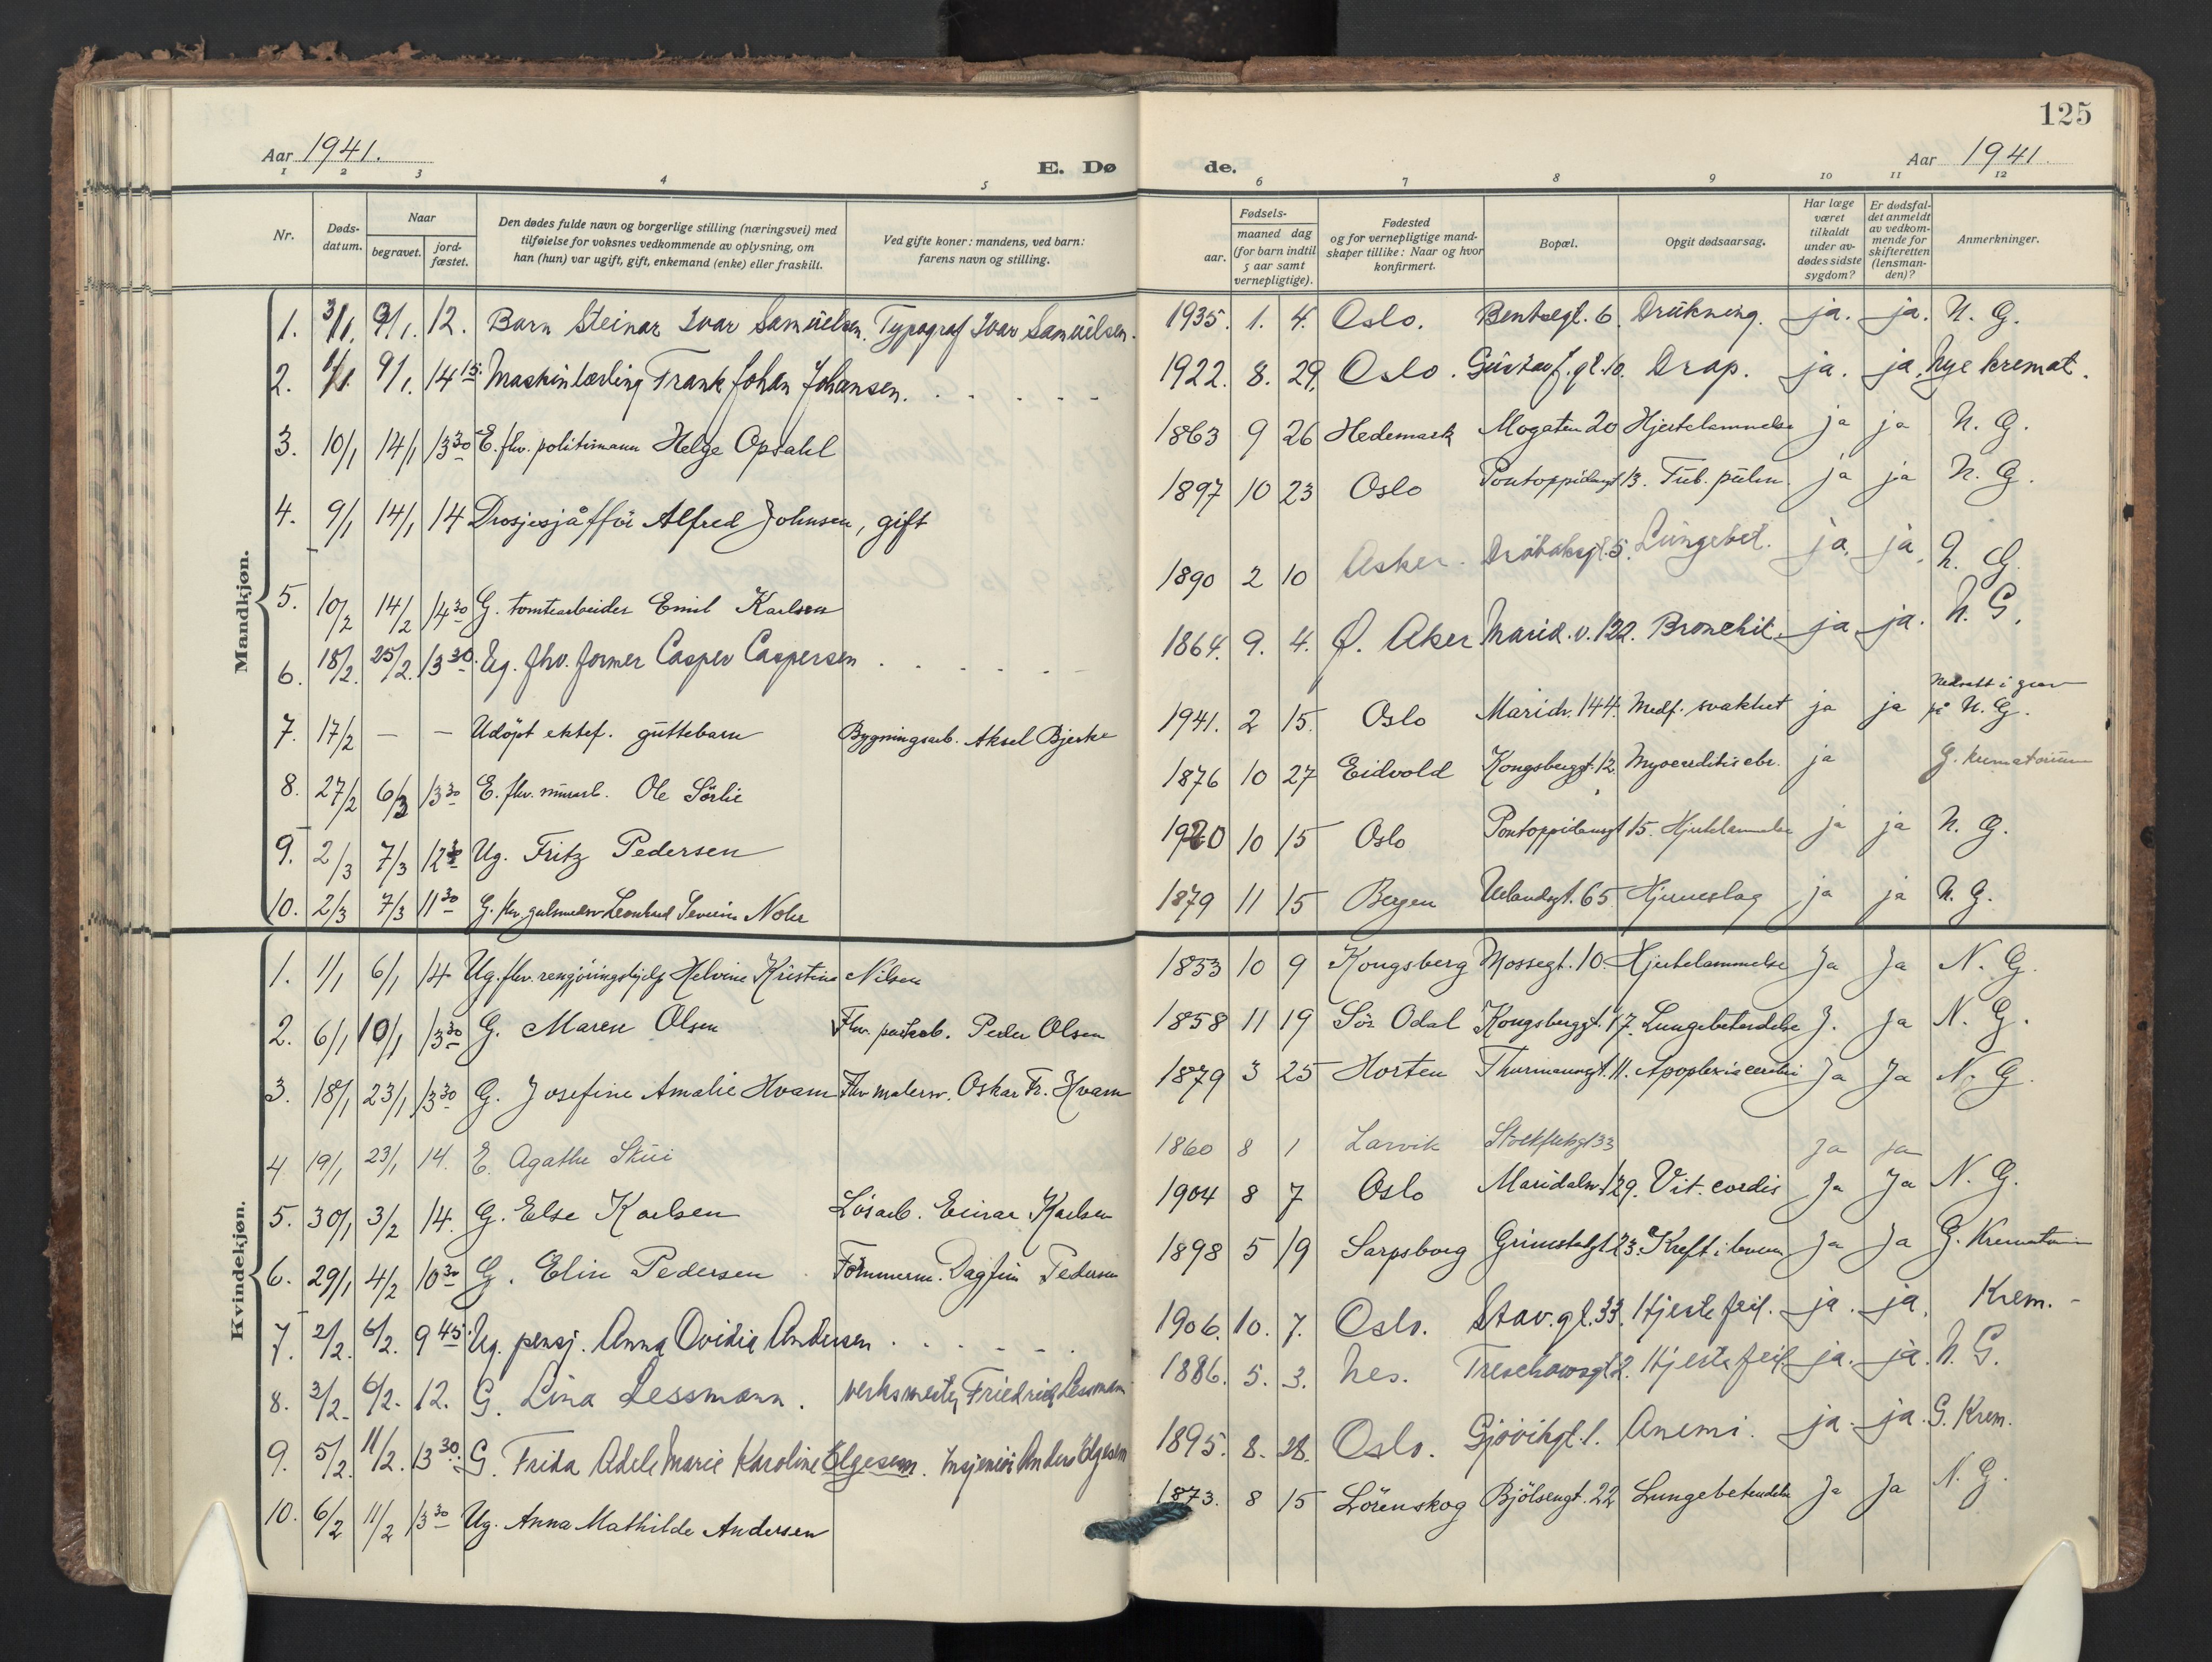 125
Aar 1941. E. Dø de. Aar 1941
1 2 3 4 5 6 7 8 9 10 11 12
Nr.
Døds-
datum.
Naar
begravet.
jord-
fæstet.
Den dødes fulde navn og borgerlige stilling (næringsvei) med
tilføielse for voksnes vedkommende av oplysning, om
han (hun) var ugift, gift, enkemand (enke) eller fraskilt.
Ved gifte koner: mandens, ved barn:
farens navn og stilling.
Fødsels-
aar.
maaned dag
(for barn indtil
5 aar samt
vernepligtige).
Fødested
og for vernepligtige mand-
skaper tillike: Naar og hvor
konfirmert.
Bopæl.
Opgit dødsaarsag.
Har læge
været
tilkaldt
under av-
dødes sidste
sygdom?
Er dødsfal-
det anmeldt
av vedkom-
mende for
skifteretten
(lensman-
den)?
Anmerkninger.
Mandkjøn.
1. 3/1. 9/1. 12. Barn Steinar Ivar Samuelsen. Typograf Ivar Samuelsen. 1935. 1. 4. Oslo. Bentsegt. 6. Drukning. ja. ja. N. G.
2. 9/1. 14 15. Maskinlærling Frank Johan Johansen. 1922. 8. 29. Oslo. gt. 10. Drap. ja. ja. Nye kremat.
3. 10/1 14/1 13 30 E. fhv. politimann Helge Opsahl 1863 9 26 Hedemark Mogaten 20 Hjertelammelse ja ja N. G.
4. 9/1 14/1 14 Drosjesjåffør Alfred Johnsen, gift 1897 10 23 Oslo Pontoppidansgt 13. Tub. pulm. ja ja N. G.
5. 10/2 14/2 14 30 G. tomtearbeider Emil Karlsen 1890 2 10 Asker. Drøbaksgt. 5. Lungebet. ja. ja. N. G.
6. 18/2. 25/2. 13 30. Ug. fhv. former Casper Caspersen 1864. 9. 4. Ø. Aker Marid. v. 122. Bronchit. ja ja. N. G.
7. 17/2 — — Udøpt ektef. guttebarn Bygningsarb. Aksel Bjerke 1941. 2 15. Oslo Maridv. 144. Medf. svakhet ja ja Nedsatt i grav
på N. G.
8. 27/2 6/3 13 30 E. fhv. murarb. Ole Sørlie 1876 10 27 Eidvold Kongsberggt. 12. ja G. krematorium
9. 2/3 7/3 12 30 Ug. Fritz Pedersen 1920 10 15 Oslo Pontoppidansgt 15. Hjertelammelse ja ja N. G.
10. 2/3 7/3 11 30 G. fhv. Severin Nohr 1879 11 15 Bergen Uelandsgt. 65 Hjerneslag ja ja N. G.
Kvindekjøn.
1. 1/1 6/1 14 Ug. fhv. rengjøringshjelp Helvine Kristine Nilsen 1853 10 9 Kongsberg Mossegt. 10. Hjertelammelse Ja Ja N. G.
2. 6/1 10/1 13 30 G. Maren Olsen Fhv. Peder Olsen 1858 11 19 Sør Odal Kongsberggt. 17. Lungebetendelse J. Ja N. G.
3. 18/1 23/1 13 30 G. Josefine Amalie Hvam Fhv malersv. Oskar Fr. Hvam 1879 3 25 Horten Thurmannsgt. 11. Apoplexia cerebri Ja Ja N. G.
4 19/1 23/1 14. E. Agathe Skui 1860 8 1 Larvik Stockfletsgt 33 Ja Ja
5. 30/1 3/2 14. G. Else Karlsen Løsarb. Einar Karlsen 1904 8 7 Oslo Maridalsv. 129. Vit. cordis Ja Ja N. G.
6. 29/1 4/2 10 30 G. Elin Pedersen Tømmerm. Dagfin Pedersen 1898 5 19 Sarpsborg Grimstadgt 23. Kreft i Ja Ja G. Krematorium
7. 2/2. 6/2. 9 45. Ug. pensj. Anna Ovidia Andersen 1906. 10. 7. Oslo. Stav. gt. 33. Hjertefeil. ja. ja. Krem.
8. 3/2. 6/2. 12. G. Lina Lessmann. verksmester Friedrich Lessmann 1886. 5. 3. Nes. Treschowsgt 2. Hjertefeil ja. ja. N. G.
9. 5/2. 11/2. 13 30. G. Frida Adele Marie Karoline Elgesem. Insjeniør Anders Elgesem 1895. 8. 28. Oslo. Gjøvikgt. 1. Anemi. ja. ja. G. Krem.
10. 6/2 11/2 13 30 Ug. Anna Mathilde Andersen 1873. 8 15 Lörenskog Bjölsengt. 22 Lungebetendelse Ja Ja N. G.